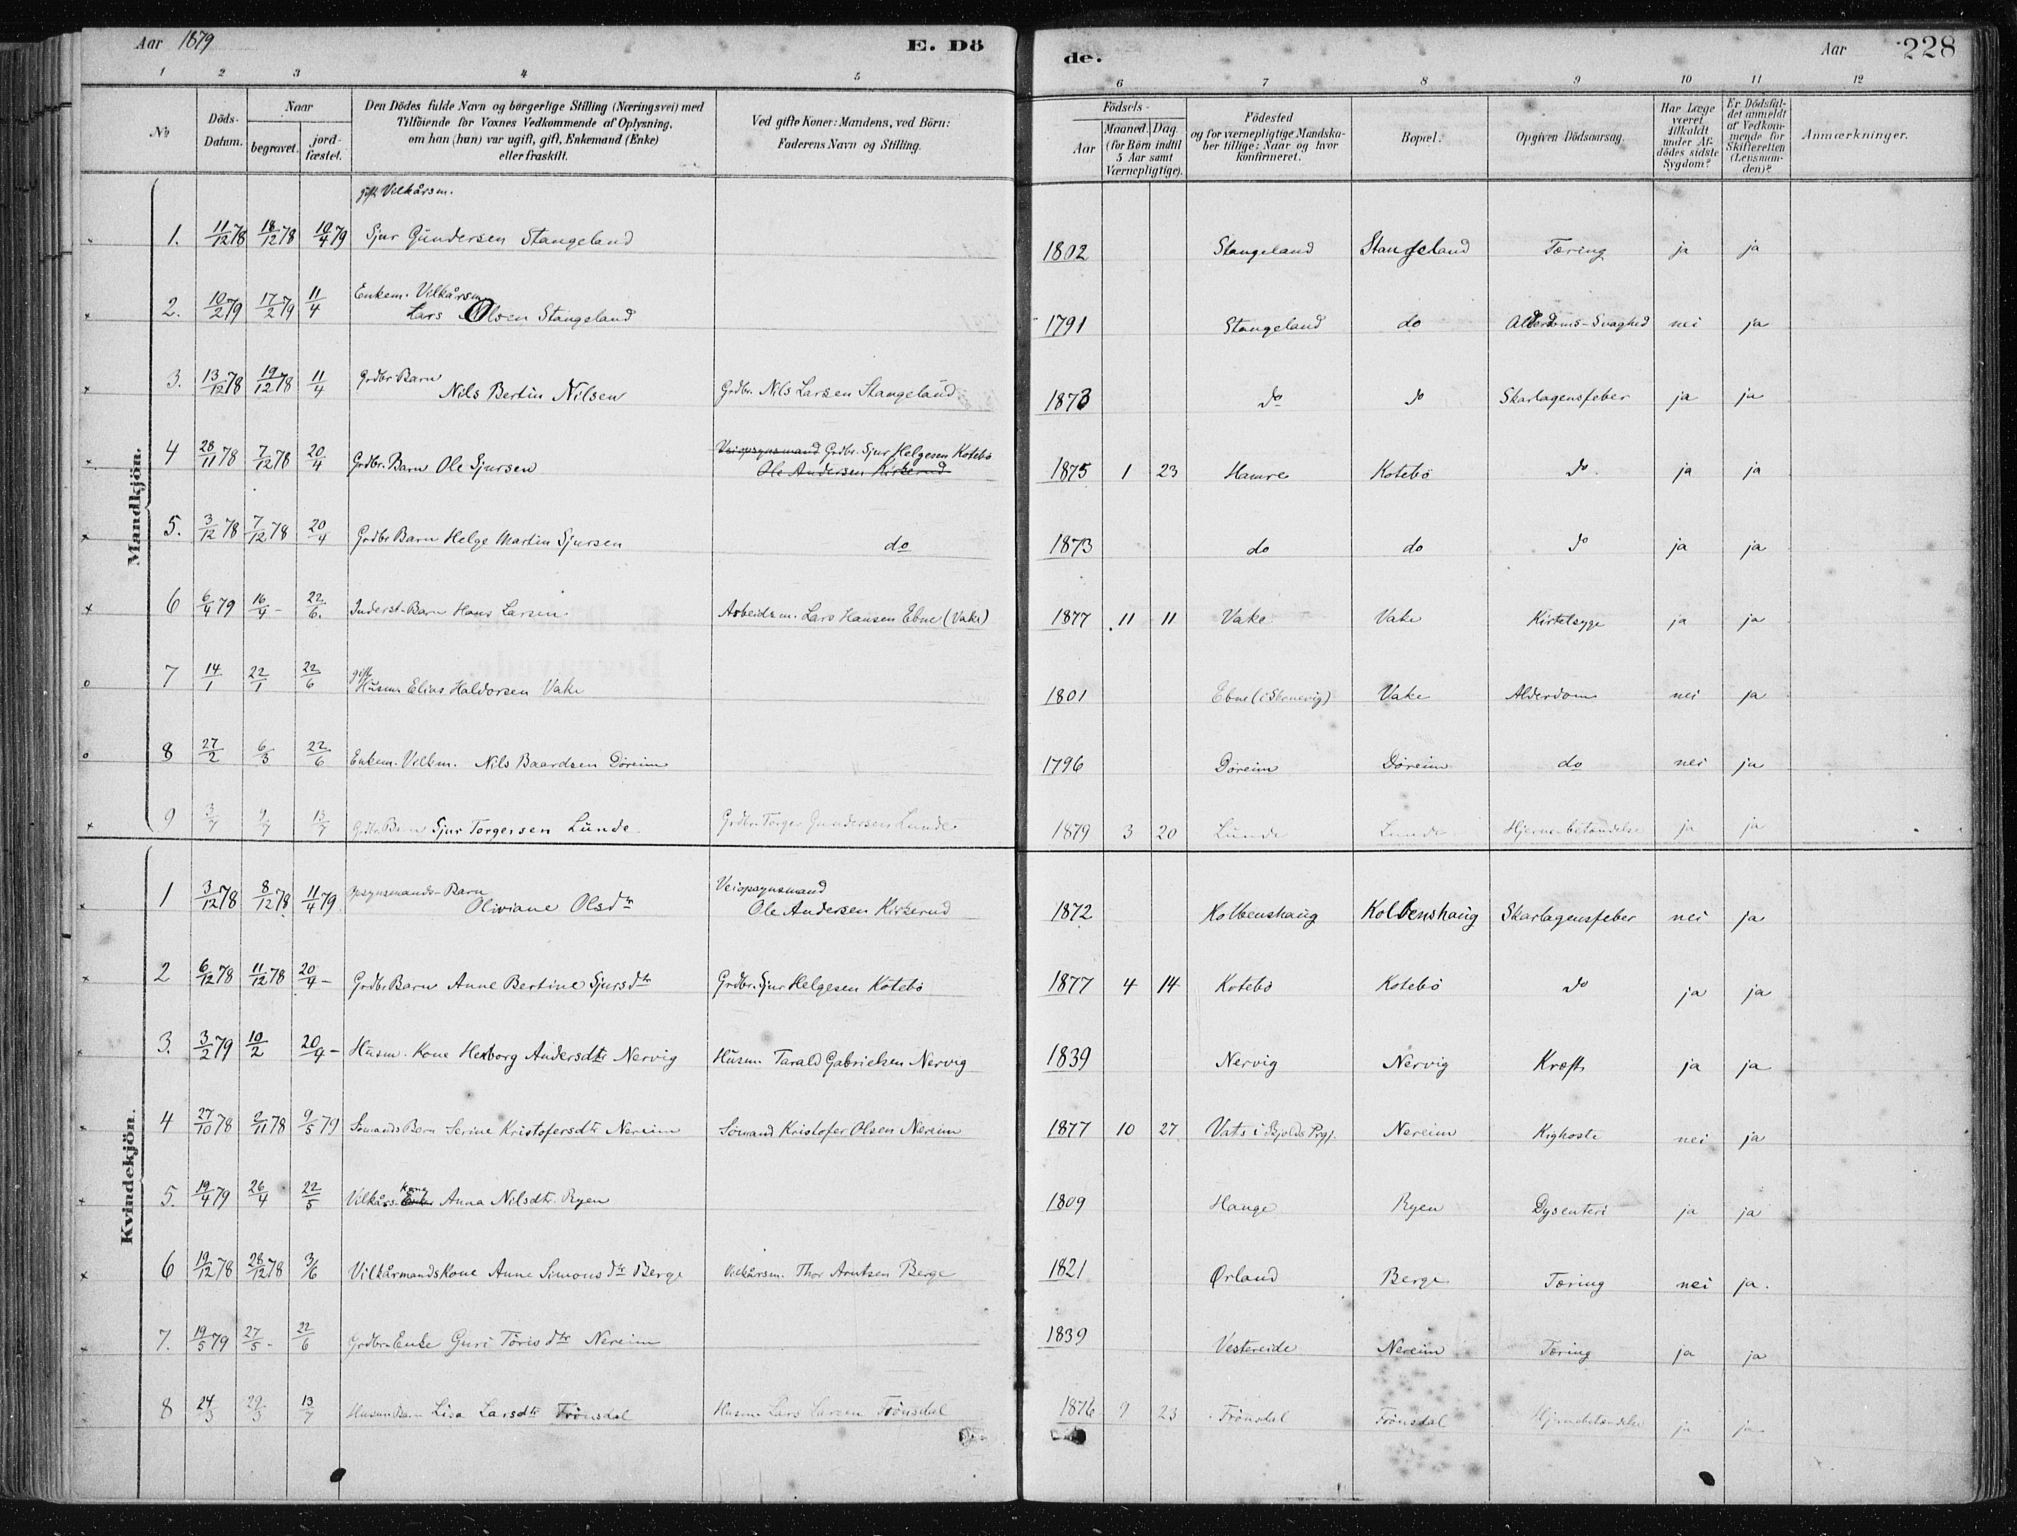 Aar 1879 E. Dö
de. Aar 228
1 2 3 4 5 6 7 8 9 10 11 12
No
Döds-Datum.
Naar
begravet.
jord-fæstet.
Den Dödes fulde Navn og borgerlige Stilling (Næringsvei) med
Tilföiende for Voxnes Vedkommende af Oplysning,
om han (hun) var ugift, gift, Enkemand (Enke)
eller fraskilt.
Ved gifte Koner: Mandens, ved Börn:
Faderens Navn og Stilling.
Födsels-
Aar
Maaned. Dag.
(for Börn indtil
5 Aar samt
Værnepligtige).
Födested
og for værnepligtige Mandska-
ber tillige: Naar og hvor
konfirmeret.
Bopæl.
Opgiven Dödsaarsag.
Har Læge
været
tilkaldt
under Af-
dödes sidste
Sygdom?
Er Dödsfal-
det anmeldt
af Vedkom-
mende for
Skifteretten
(Lensman-
den)?
Anmærkninger.
Mandkjön.
gift Vilkårsm.
1. 11/12 78 18/12 78 10/4 79 Sjur Gundersen Stangeland 1802 Stangeland Stangeland Tæring ja ja
Enkem. Vilkårsm.
2. 10/2 79 17/2 79 11/4 Lars Olsen Stangeland 1791 Stangeland do Alderdoms-Svaghed nei ja
3. 13/12 78 19/12 78 11/4 Grdbr. Barn Nils Bertin Nilsen Grdbr. Nils Larsen Stangeland 1873 do do Skarlagensfeber ja ja
4 28/11 78 7/12 78 20/4 Grdbr. Barn Ole Sjursen Veiopsynsmand Grdbr. Sjur Helgesen Kotebö 1875 1 23 Hamre Kotebö do ja ja
Ole Andersen Kirkerud
5. 3/12 78 7/12 78 20/4 Grdbr Barn Helge Martin Sjursen do 1873 do do do ja ja
6 6/4 79 16/4 - 22/6. Inderst-Barn Hans Larsen Arbeidsm. Lars Hansen Ebne (Vake) 1877 11 11 Vake Vake Kirtelsyge ja ja
7 14/1 22/1 22/6 gift Husm. Elias Haldorsen Vake 1801 Ebne (i Skonevig) Vake Alderdom nei ja
8 27/2 6/3 22/6 Enkem. Vilkm. Nils Baardsen Döreim 1796 Döreim Döreim do nei ja
9 3/7 9/7 13/7 Grdbr. Barn Sjur Torgersen Lunde Grdbr. Torger Gundersen Lunde 1879 3 20 Lunde Lunde Hjernebetændelse ja ja
Kvindekjön.
1 3/12 78 8/12 78 11/4 79 Opsynsmands-Barn Oliviane Olsdtr Veiopsynsmand Ole Andersen Kirkerud 1872 Kolbenshaug Kolbenshaug Skarlagensfeber nei ja
2 6/12 78 11/12 78 20/4 - Grdbr Barn Anne Bertine Sjursdtr Grdbr. Sjur Helgesen Kotebö 1877 4 14 Kotebö Kotebö do ja ja
3. 3/2 79 10/2 20/4 - Husm. Kone Herborg Andersdtr Nervig Husm. Tarald Gabrielsen Nervig 1839 Nervig Nervig Kræft ja ja
4 27/10 78 2/11 78 9/5 79 Sömands Barn Serine Kristofersdtr Nereim Sömand Kristofer Olsen Nereim 1877 10 27 Vats i Skjolds Prgj. Nereim Kighoste nei ja
5. 19/4 79 26/4 22/5 Vilkårs Enke Kone Anna Nilsdtr. Ryen 1809 Hauge Ryen Dysenteri ja ja
6 19/12 78 28/12 78 3/6 Vilkårmands Kone Anne Simonsdtr Berge Vilkårsm. Thor Arntsen Berge 1821 Ørland Berge Tæring nei ja.
7. 19/5 79 27/5 - 22/6 Grdbr. Enke Guri Törisdtr Nereim 1839 Vestereide Nereim Tæring ja ja
8 24/3 29/3 13/7 Husm Barn Lisa Larsdtr Frönsdal Husm Lars Larsen Frönsdal 1876 9 23 Frönsdal Frönsdal Hjernebetændelse ja ja